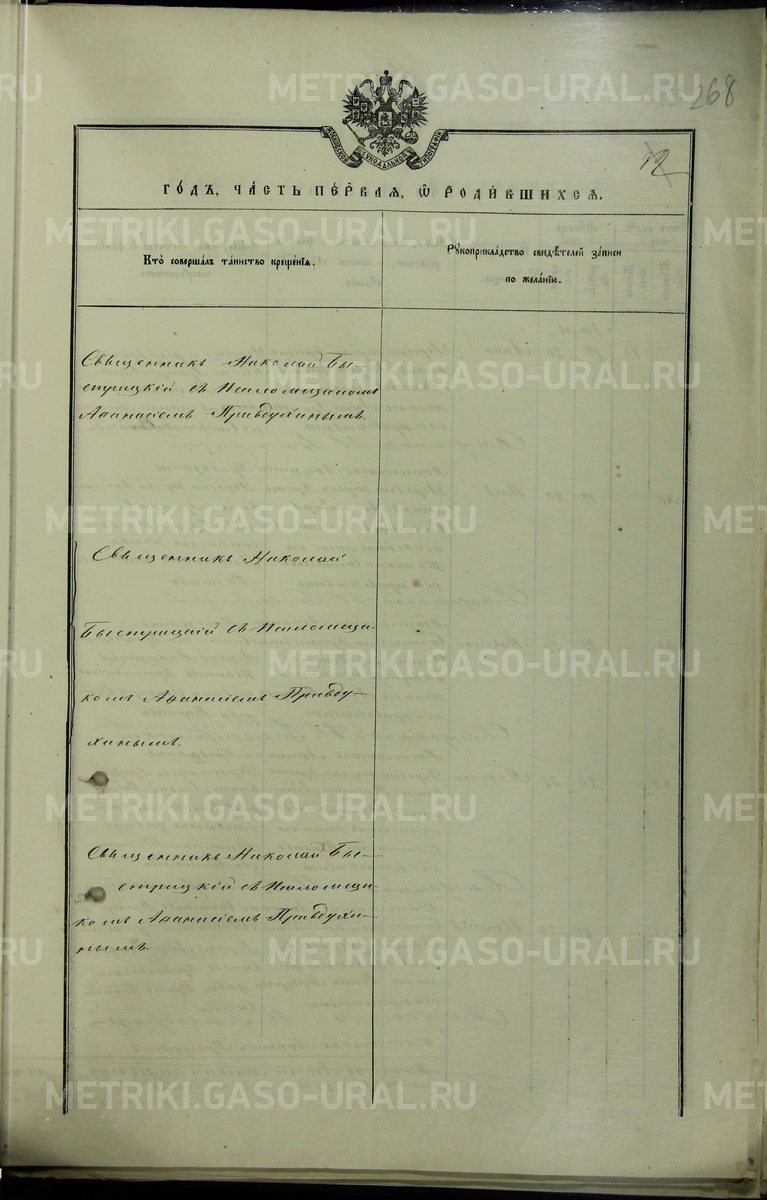 268
12
МОСКОВСКОЙ СѴНОДАЛЬНОЙ ТИПОГРАФІИ
ГО́ДЪ, ЧА́СТЬ ПЕ́РВАЯ, Ѡ҆ РОДИ́ВШИХСЯ.
Кто̀ соверша́лъ та́инство креще́нїя.
Рꙋкоприкла́дство свидѣ́телей за́писи
по жела́нїю.
Священникъ Николай Бы-
стрицкій съ Псаломщикомъ
Аѳанасіемъ Правдухинымъ.
Священникъ Николай
Быстрицкій съ Псаломщи-
комъ Аѳанасіемъ Правду-
хинымъ.
Священникъ Николай Бы-
стрицкій съ Псаломщи-
комъ Аѳанасіемъ Правдухи-
нымъ.
METRIKI.GASO-URAL.RU